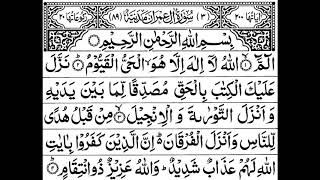 اٰیَاتُهَا ٢٠٠ (٣) سُوْرَةُ اٰلِ عِمْرٰنَ مَدَنِیَّةٌ (٨٩) رُكُوْعَاتُهَا ٢٠
بِسْمِ اللّٰهِ الرَّحْمٰنِ الرَّحِیْمِ
الٓمَّٓ ۙ﴿١﴾ اللّٰهُ لَاۤ اِلٰهَ اِلَّا هُوَ ۙ الْحَیُّ الْقَیُّوْمُ ؕ﴿٢﴾ نَزَّلَ
عَلَیْكَ الْكِتٰبَ بِالْحَقِّ مُصَدِّقًا لِّمَا بَیْنَ یَدَیْهِ
وَ اَنْزَلَ التَّوْرٰىةَ وَ الْاِنْجِیْلَ ۙ﴿٣﴾ مِنْ قَبْلُ هُدًی
لِّلنَّاسِ وَ اَنْزَلَ الْفُرْقَانَ ؕ۬ اِنَّ الَّذِیْنَ كَفَرُوْا بِاٰیٰتِ
اللّٰهِ لَهُمْ عَذَابٌ شَدِیْدٌ ؕ وَ اللّٰهُ عَزِیْزٌ ذُو انْتِقَامٍ ﴿٤﴾